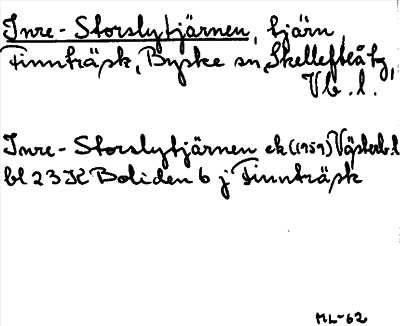 Inre-Storslytjärnen, tjärn,
Finnträsk, Byske sn, Skellefteå tg,
Vb. l.
Inre-Storslytjärnen ek (1959) Västerb. l
bl 23 K Boliden 6 j Finnträsk
ML-62